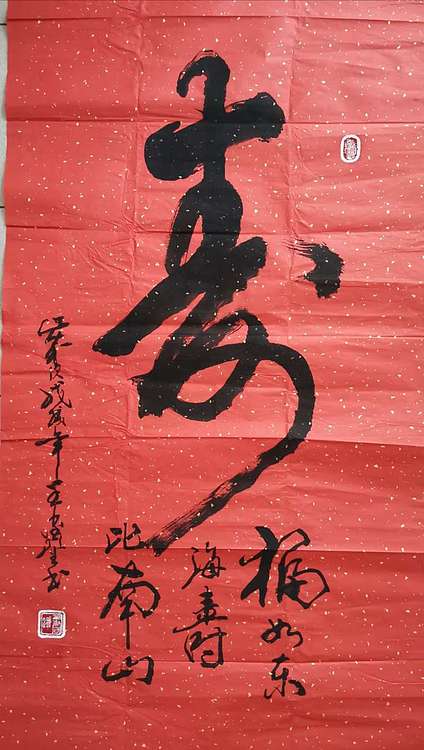 寿
福如东
海壽
比南山
戊戌年
书